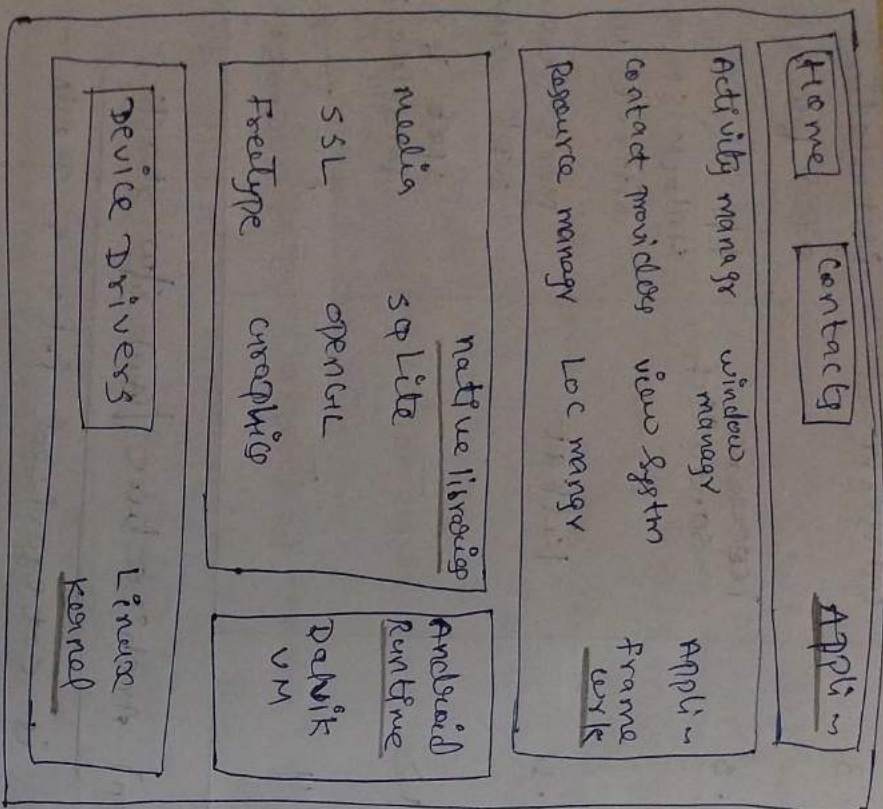 Home Contacts Appli~
Activity managr window managr Appli~
Contact providers view Systm Frame
Resource managr Loc mangr work
native libraries
media SQLite
SSL openGL
Freetype Graphics
Android
Runtime
Dalvik
VM
Device Drivers Linux
Kernel